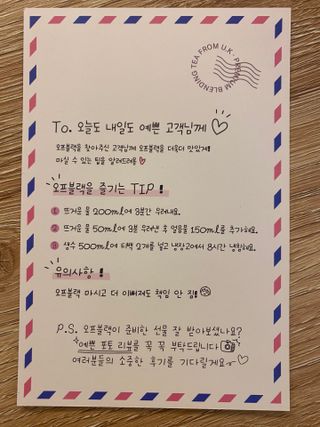 TEA FROM U.K - PREMIUM BLENDING
To. 오늘도 내일도 예쁜 고객님께
오프블랙을 찾아주신 고객님께 오프블랙을 더욱더 맛있게!
마실 수 있는 팁을 알려드려용
오프블랙을 즐기는 TIP !
1 뜨거운 물 200ml에 3분간 우려내요.
2 뜨거운 물 50ml에 3분 우려낸 후 얼음물 150ml를 추가해요.
3 생수 500ml에 티백 2개를 넣고 냉장고에서 8시간 냉침해요.
유의사항 !
오프블랙 마시고 더 이뻐져도 책임 안 짐!
P.S. 오프블랙이 준비한 선물 잘 받아보셨나요?
예쁜 포토 리뷰를 꼭 꼭 부탁드립니다
여러분들의 소중한 후기를 기다릴게요~